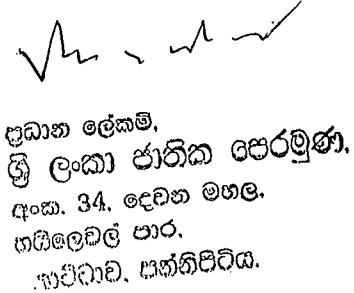 ප්‍රධාන ලේකම්,
ශ්‍රී ලංකා ජාතික පෙරමුණ,
අංක. 34, දෙවන මහල,
හයිලෙවල් පාර,
පන්නිපිටිය.